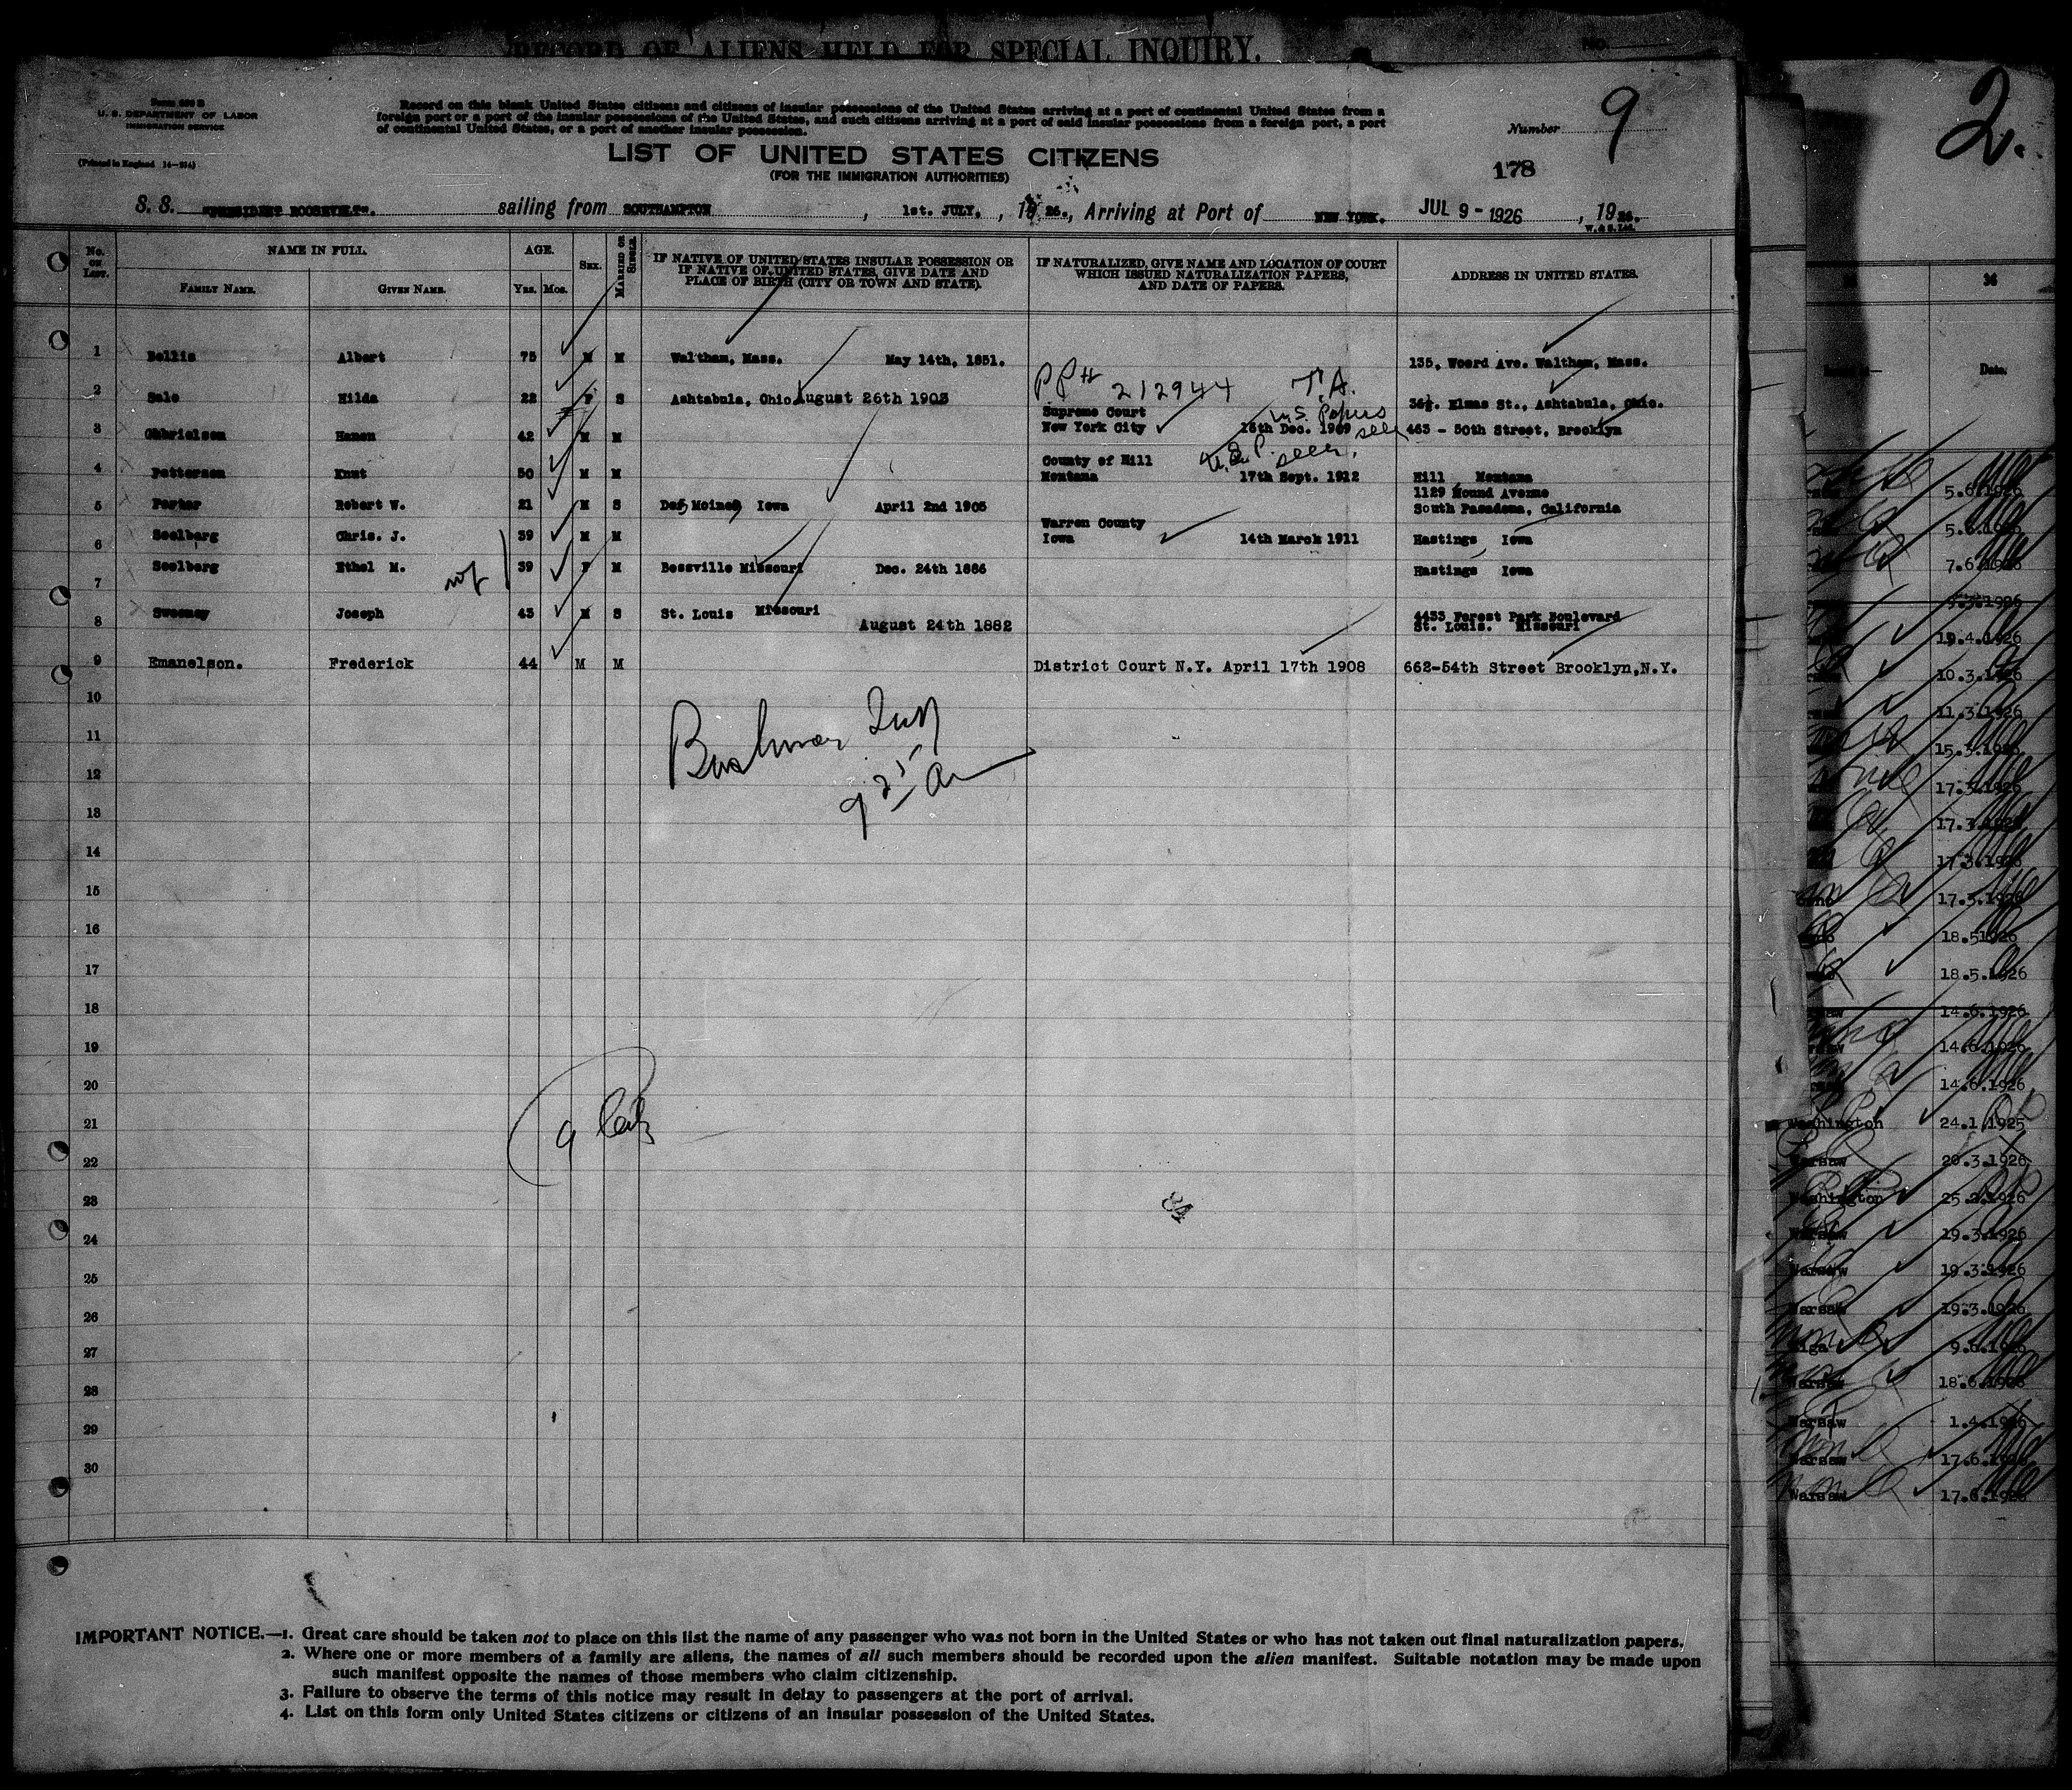 RECORD OF ALIENS HELD FOR SPECIAL INQUIRY.
NO.
2.
U. S. DEPARTMENT OF LABOR
IMMIGRATION SERVICE
Record on this blank United States citizens and citizens of insular possessions of the United States arriving at a port of continental United States from a
foreign port or a port of the insular possessions of the United States, and such citizens arriving at a port of said insular possessions from a foreign port, a port
of continental United States, or a port of another insular possession.
Number 9
LIST OF UNITED STATES CITIZENS
(FOR THE IMMIGRATION AUTHORITIES)
178
S. S. "PRESIDENT ROOSEVELT". sailing from SOUTHAMPTON, 1st. JULY, 1926., Arriving at Port of NEW YORK. JUL 9 - 1926, 1926.
No. ON LIST. NAME IN FULL. AGE. SEX. MARRIED OR SINGLE. IF NATIVE OF UNITED STATES INSULAR POSSESSION OR IF NATIVE OF UNITED STATES, GIVE DATE AND PLACE OF BIRTH (CITY OR TOWN AND STATE). IF NATURALIZED, GIVE NAME AND LOCATION OF COURT WHICH ISSUED NATURALIZATION PAPERS, AND DATE OF PAPERS. ADDRESS IN UNITED STATES.
FAMILY NAME. GIVEN NAME. YRS. MOS.
1 Bellis Albert 75 M M Waltham, Mass. May 14th, 1851. 135, Woerd Ave. Waltham, Mass.
PP# 212944 T.A.
2 Salo Hilda 22 F S Ashtabula, Ohio August 26th 1903 36½. Elmas St., Ashtabula, Ohio.
Supreme Court U.S. Papers
3 Gabrielsen Hanen 42 M M New York City 15th Dec. 1909 seen 463 - 50th Street, Brooklyn
County of Hill U.S.P. seen.
4 Petterson Knut 50 M M Montana 17th Sept. 1912 Hill Montana
1129 Mound Avenue
5 Porter Robert W. 21 M S Des Moines Iowa April 2nd 1905 South Pasadena, California
Warren County
6 Seelberg Chris. J. 39 M M Iowa 14th March 1911 Hastings Iowa
7 Seelberg Ethel M. 39 F M Bessville Missouri Dec. 24th 1886 Hastings Iowa
8 Sweeney Joseph 43 M S St. Louis Missouri August 24th 1882 4433 Forest Park Boulevard
St. Louis. Missouri
9 Emanelson. Frederick 44 M M District Court N.Y. April 17th 1908 662-54th Street Brooklyn, N.Y.
10
11
12
13
14
15
16
17
18
19
20
21
22
23
24
25
26
27
28
29
30
84
IMPORTANT NOTICE.—1. Great care should be taken not to place on this list the name of any passenger who was not born in the United States or who has not taken out final naturalization papers.
2. Where one or more members of a family are aliens, the names of all such members should be recorded upon the alien manifest. Suitable notation may be made upon
such manifest opposite the names of those members who claim citizenship.
3. Failure to observe the terms of this notice may result in delay to passengers at the port of arrival.
4. List on this form only United States citizens or citizens of an insular possession of the United States.
36
Date.
5.6.1926
7.6.1926
9.3.1926
19.4.1926
10.3.1926
11.3.1926
15.3.1926
17.3.1926
17.3.1926
17.3.1926
18.5.1926
18.5.1926
14.6.1926
14.6.1926
14.6.1926
Washington 24.1.1925
Warsaw 20.3.1926
Washington
Warsaw 19.3.1926
Warsaw 19.3.1926
Warsaw 19.3.1926
Riga 9.6.1926
Warsaw 18.6.1926
Warsaw 1.4.1926
Warsaw 17.6.1926
Warsaw 17.6.1926